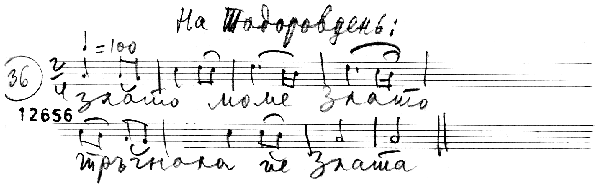 На Тодоровдень:
♩=100
36 2/4
злато моме Злато
12656
тръгнала ѝе Злата